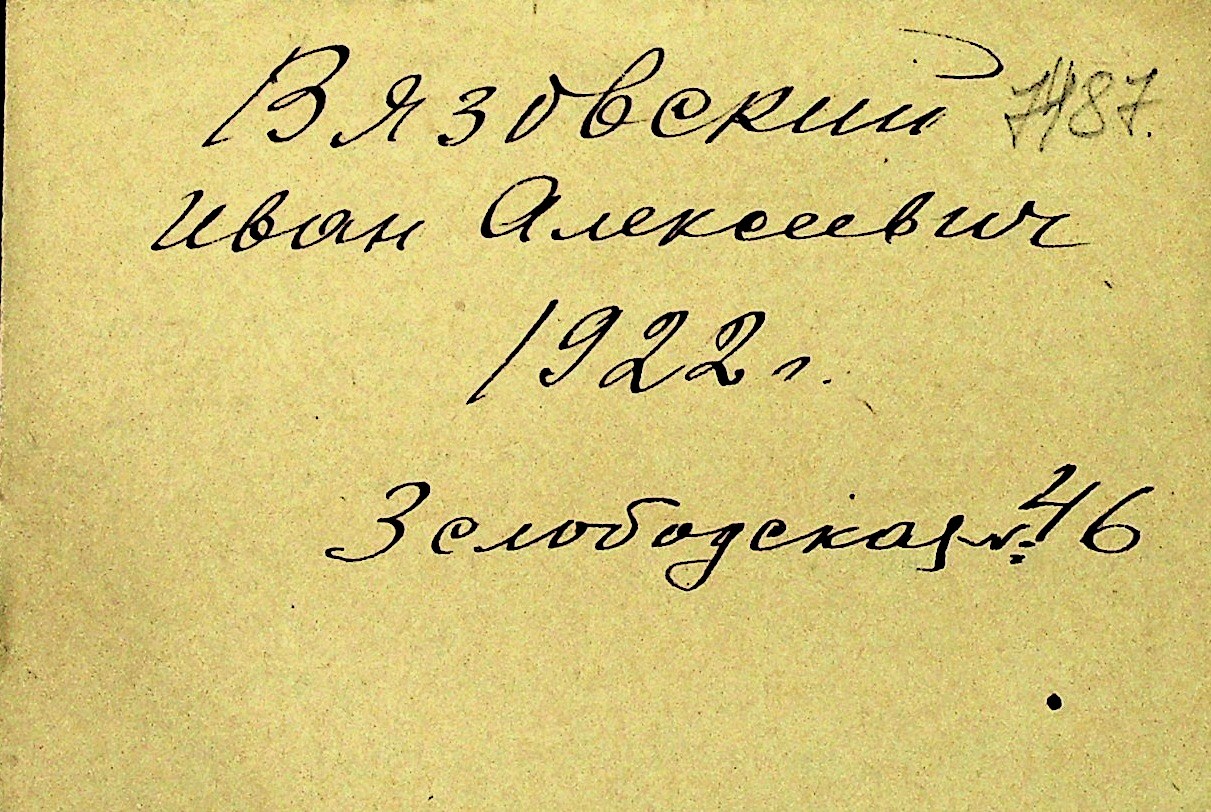 Вязовский 7487.
Иван Алексеевич
1922 г.
3 слободская №46